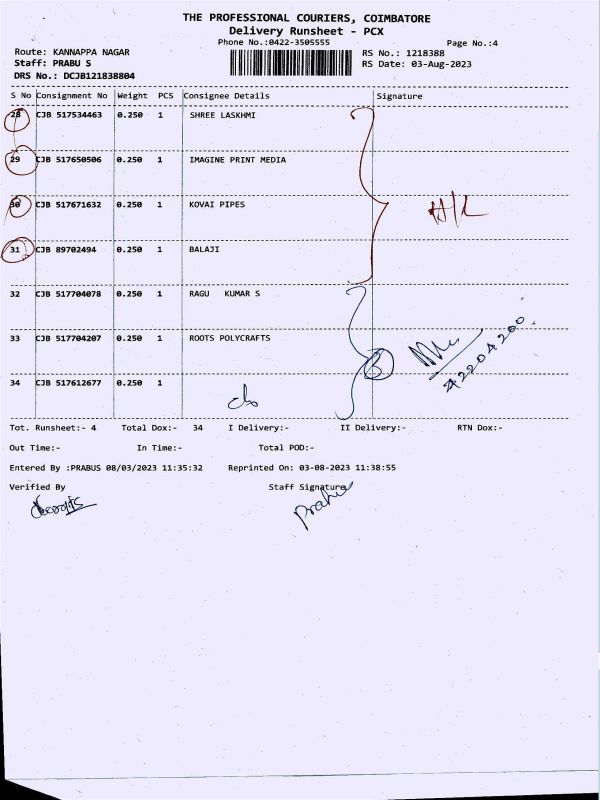 THE PROFESSIONAL COURIERS, COIMBATORE
Delivery Runsheet - PCX
Phone No.:0422-3505555
Page No.:4
Route: KANNAPPA NAGAR
RS No.: 1218388
Staff: PRABU S
RS Date: 03-Aug-2023
DRS No.: DCJB121838804
S No Consignment No Weight PCS Consignee Details Signature
28 CJB 517534463 0.250 1 SHREE LASKHMI
29 CJB 517650506 0.250 1 IMAGINE PRINT MEDIA
30 CJB 517671632 0.250 1 KOVAI PIPES
31 CJB 89702494 0.250 1 BALAJI
32 CJB 517704078 0.250 1 RAGU KUMAR S
33 CJB 517704207 0.250 1 ROOTS POLYCRAFTS
42204200
34 CJB 517612677 0.250 1
Tot. Runsheet:- 4 Total Dox:- 34 I Delivery:- II Delivery:- RTN Dox:-
Out Time:- In Time:- Total POD:-
Entered By :PRABUS 08/03/2023 11:35:32 Reprinted On: 03-08-2023 11:38:55
Verified By Staff Signature